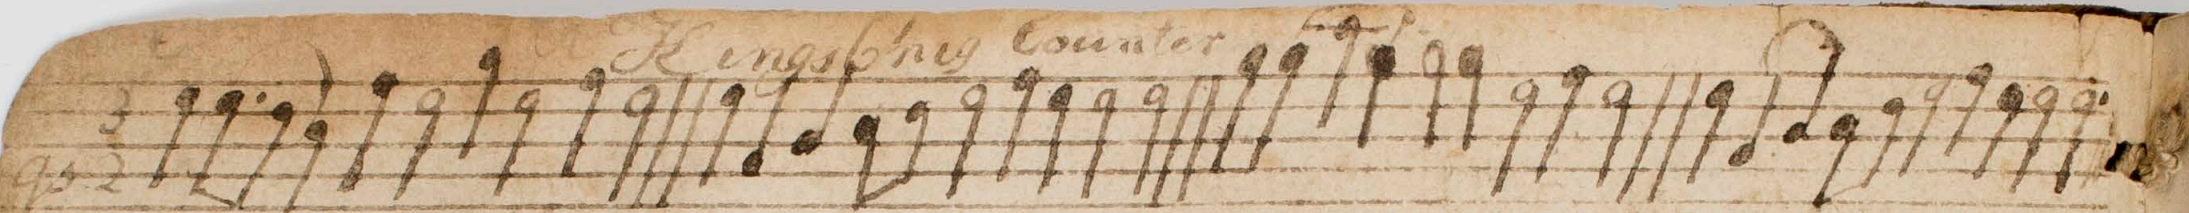 Kingsb'rig Counter
3
2